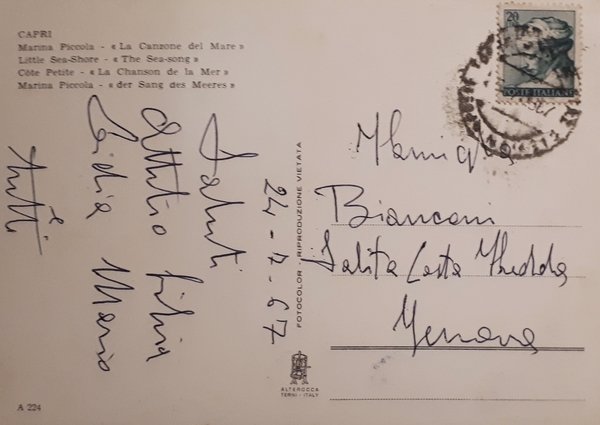 CAPRI
Marina Piccola - « La Canzone del Mare »
Little Sea-Shore - « The Sea-song »
Côte Petite - « La Chanson de la Mer »
Marina Piccola - « der Sang des Meeres »
Saluti
Attilio Silvia
Lidia Mario
e
tutti
24-7-67
FOTOCOLOR - RIPRODUZIONE VIETATA
ALTEROCCA
TERNI - ITALY
A 224
20
POSTE ITALIANE
Famiglia
Bianconi
Salita Costa
Genova